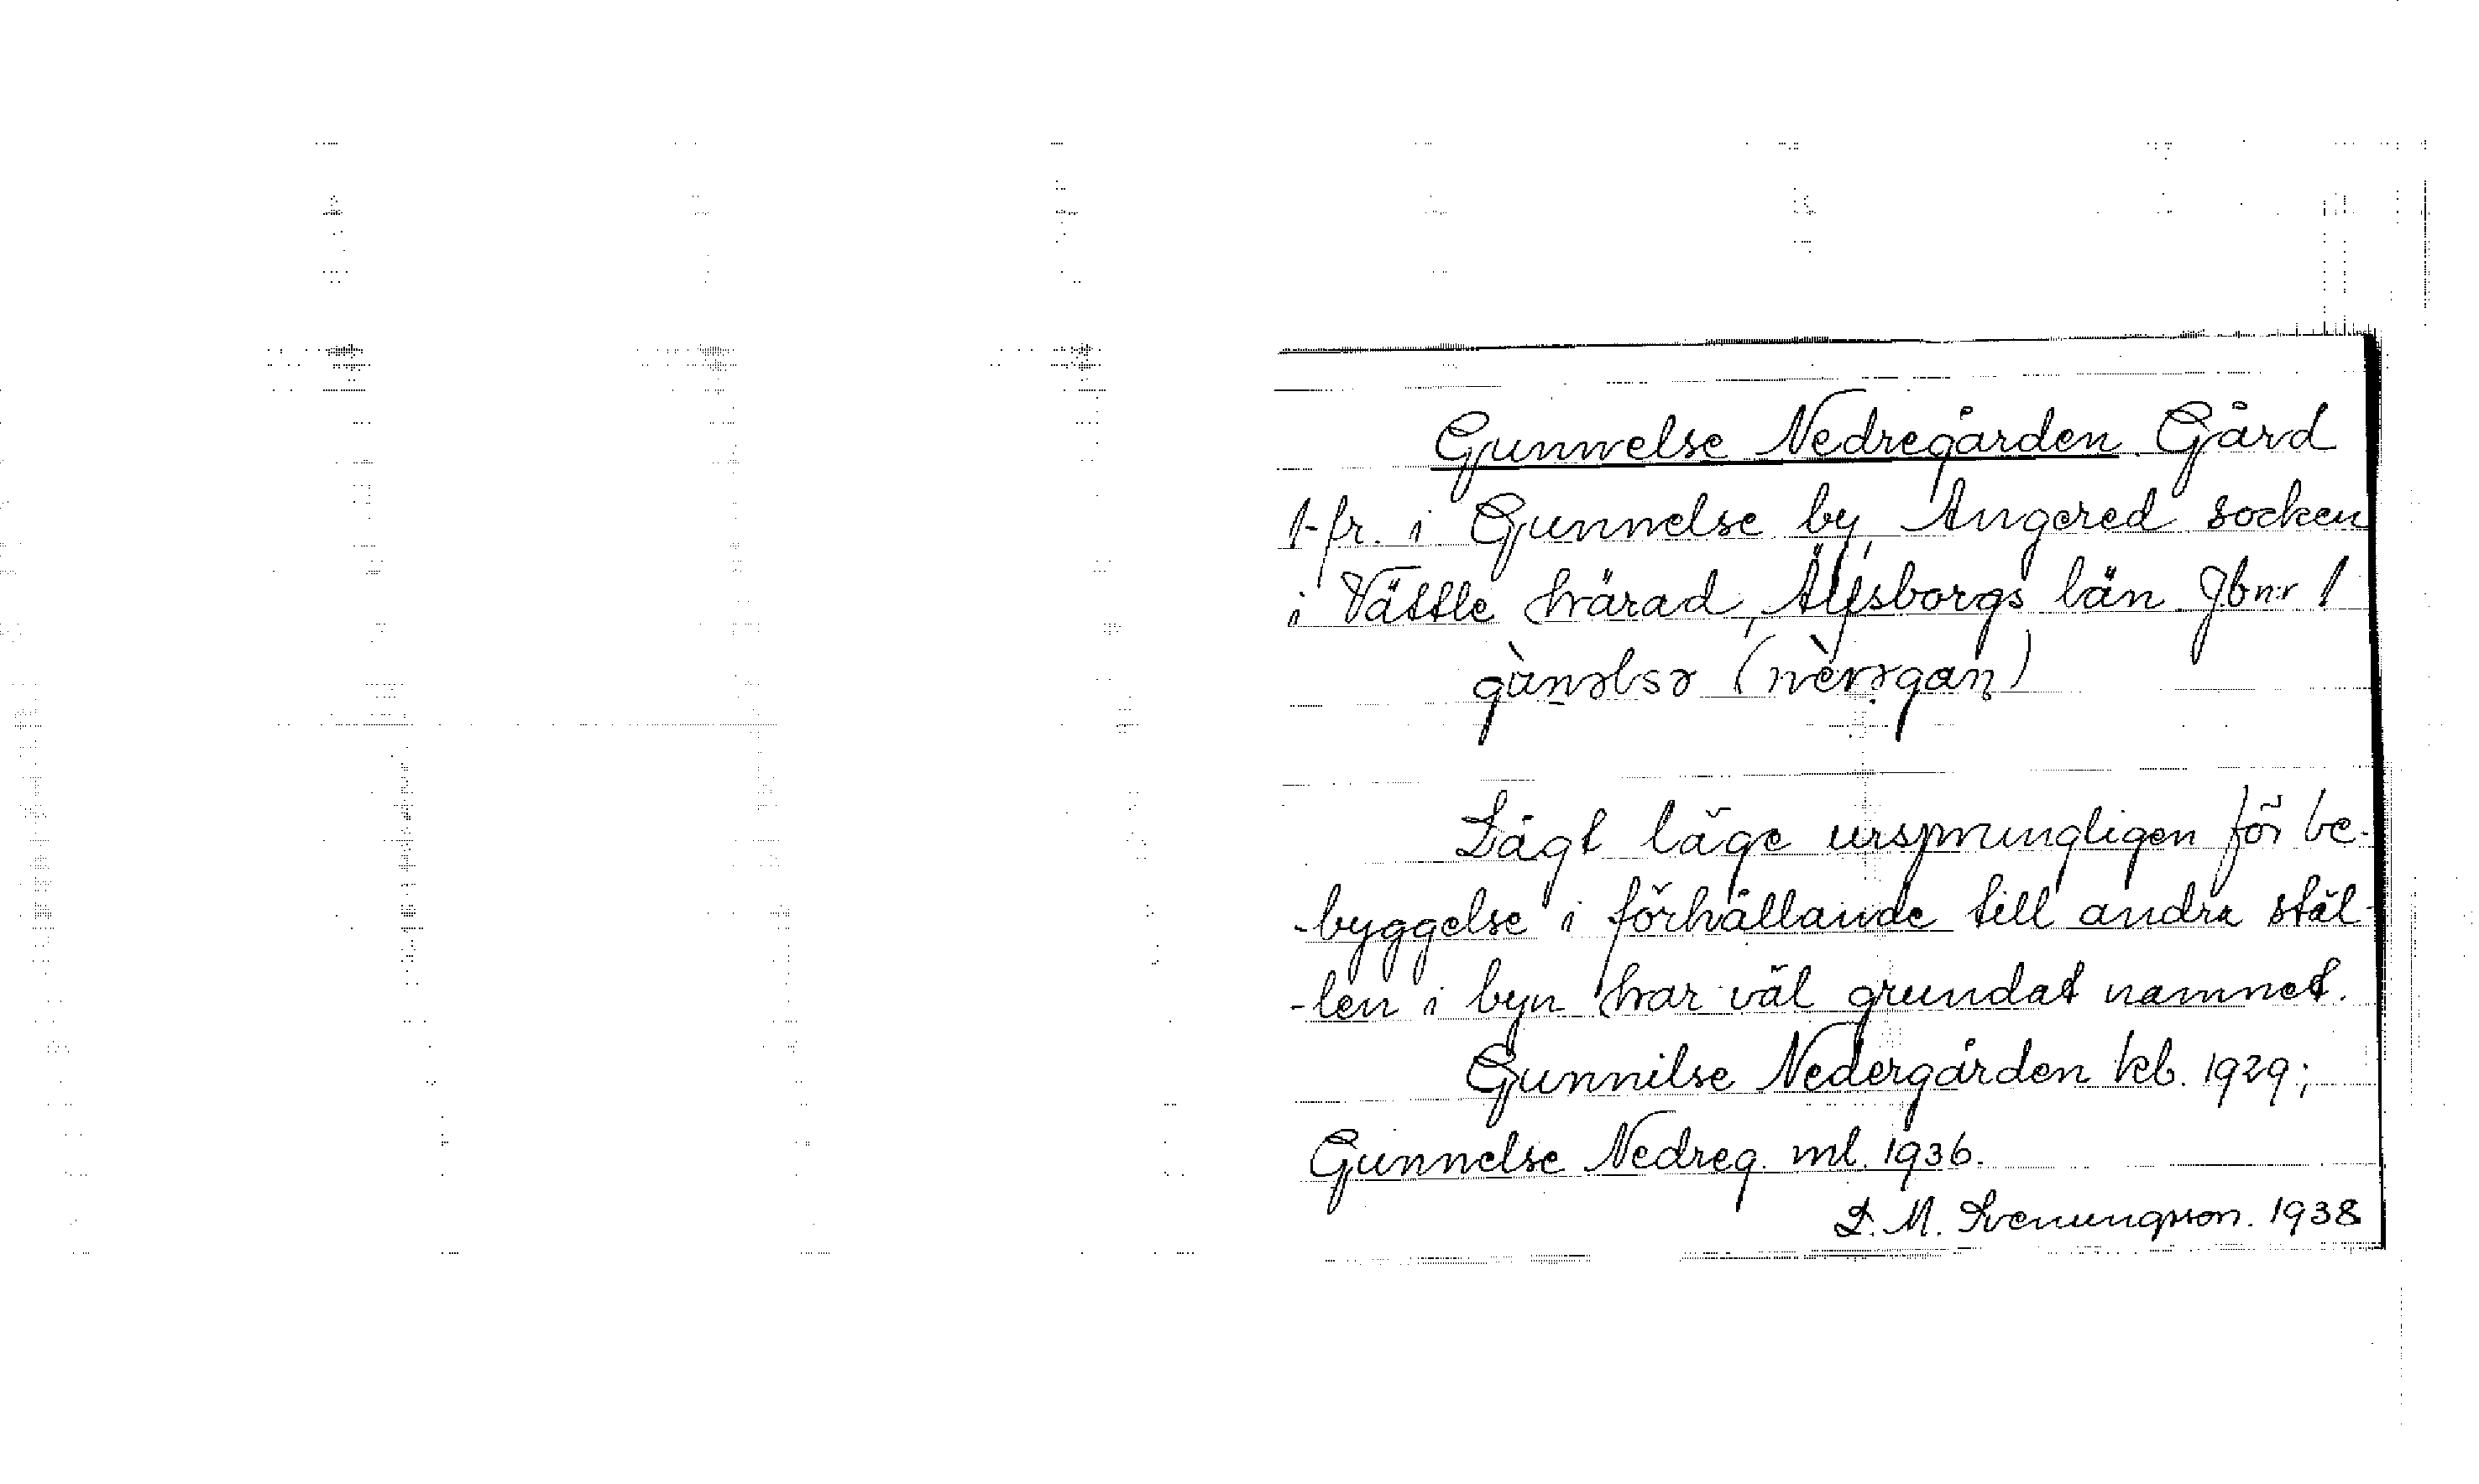 Gunnelse Nedregården. Gård
1-fr. i Gunnelse by, Angered socken
i Vättle härad, Älfsborgs län Jbn:r 1
gùnəlsə (nèrəgaṇ)
Lågt läge ursprungligen för be-
-byggelse i förhållande till andra stäl-
-len i byn har väl grundat namnet.
Gunnilse Nedergården kb. 1929;
Gunnelse Nedreg. ml. 1936.
L. M. Svenungsson. 1938